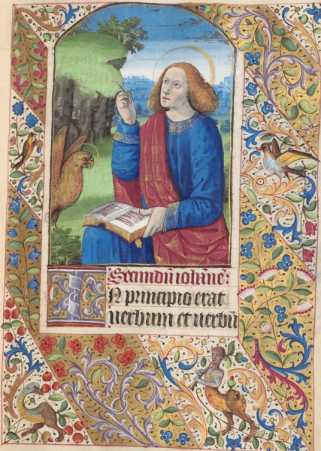 Secundu̅ ioha̅ne̅:
N principio erat
uerbum et uerbu̅